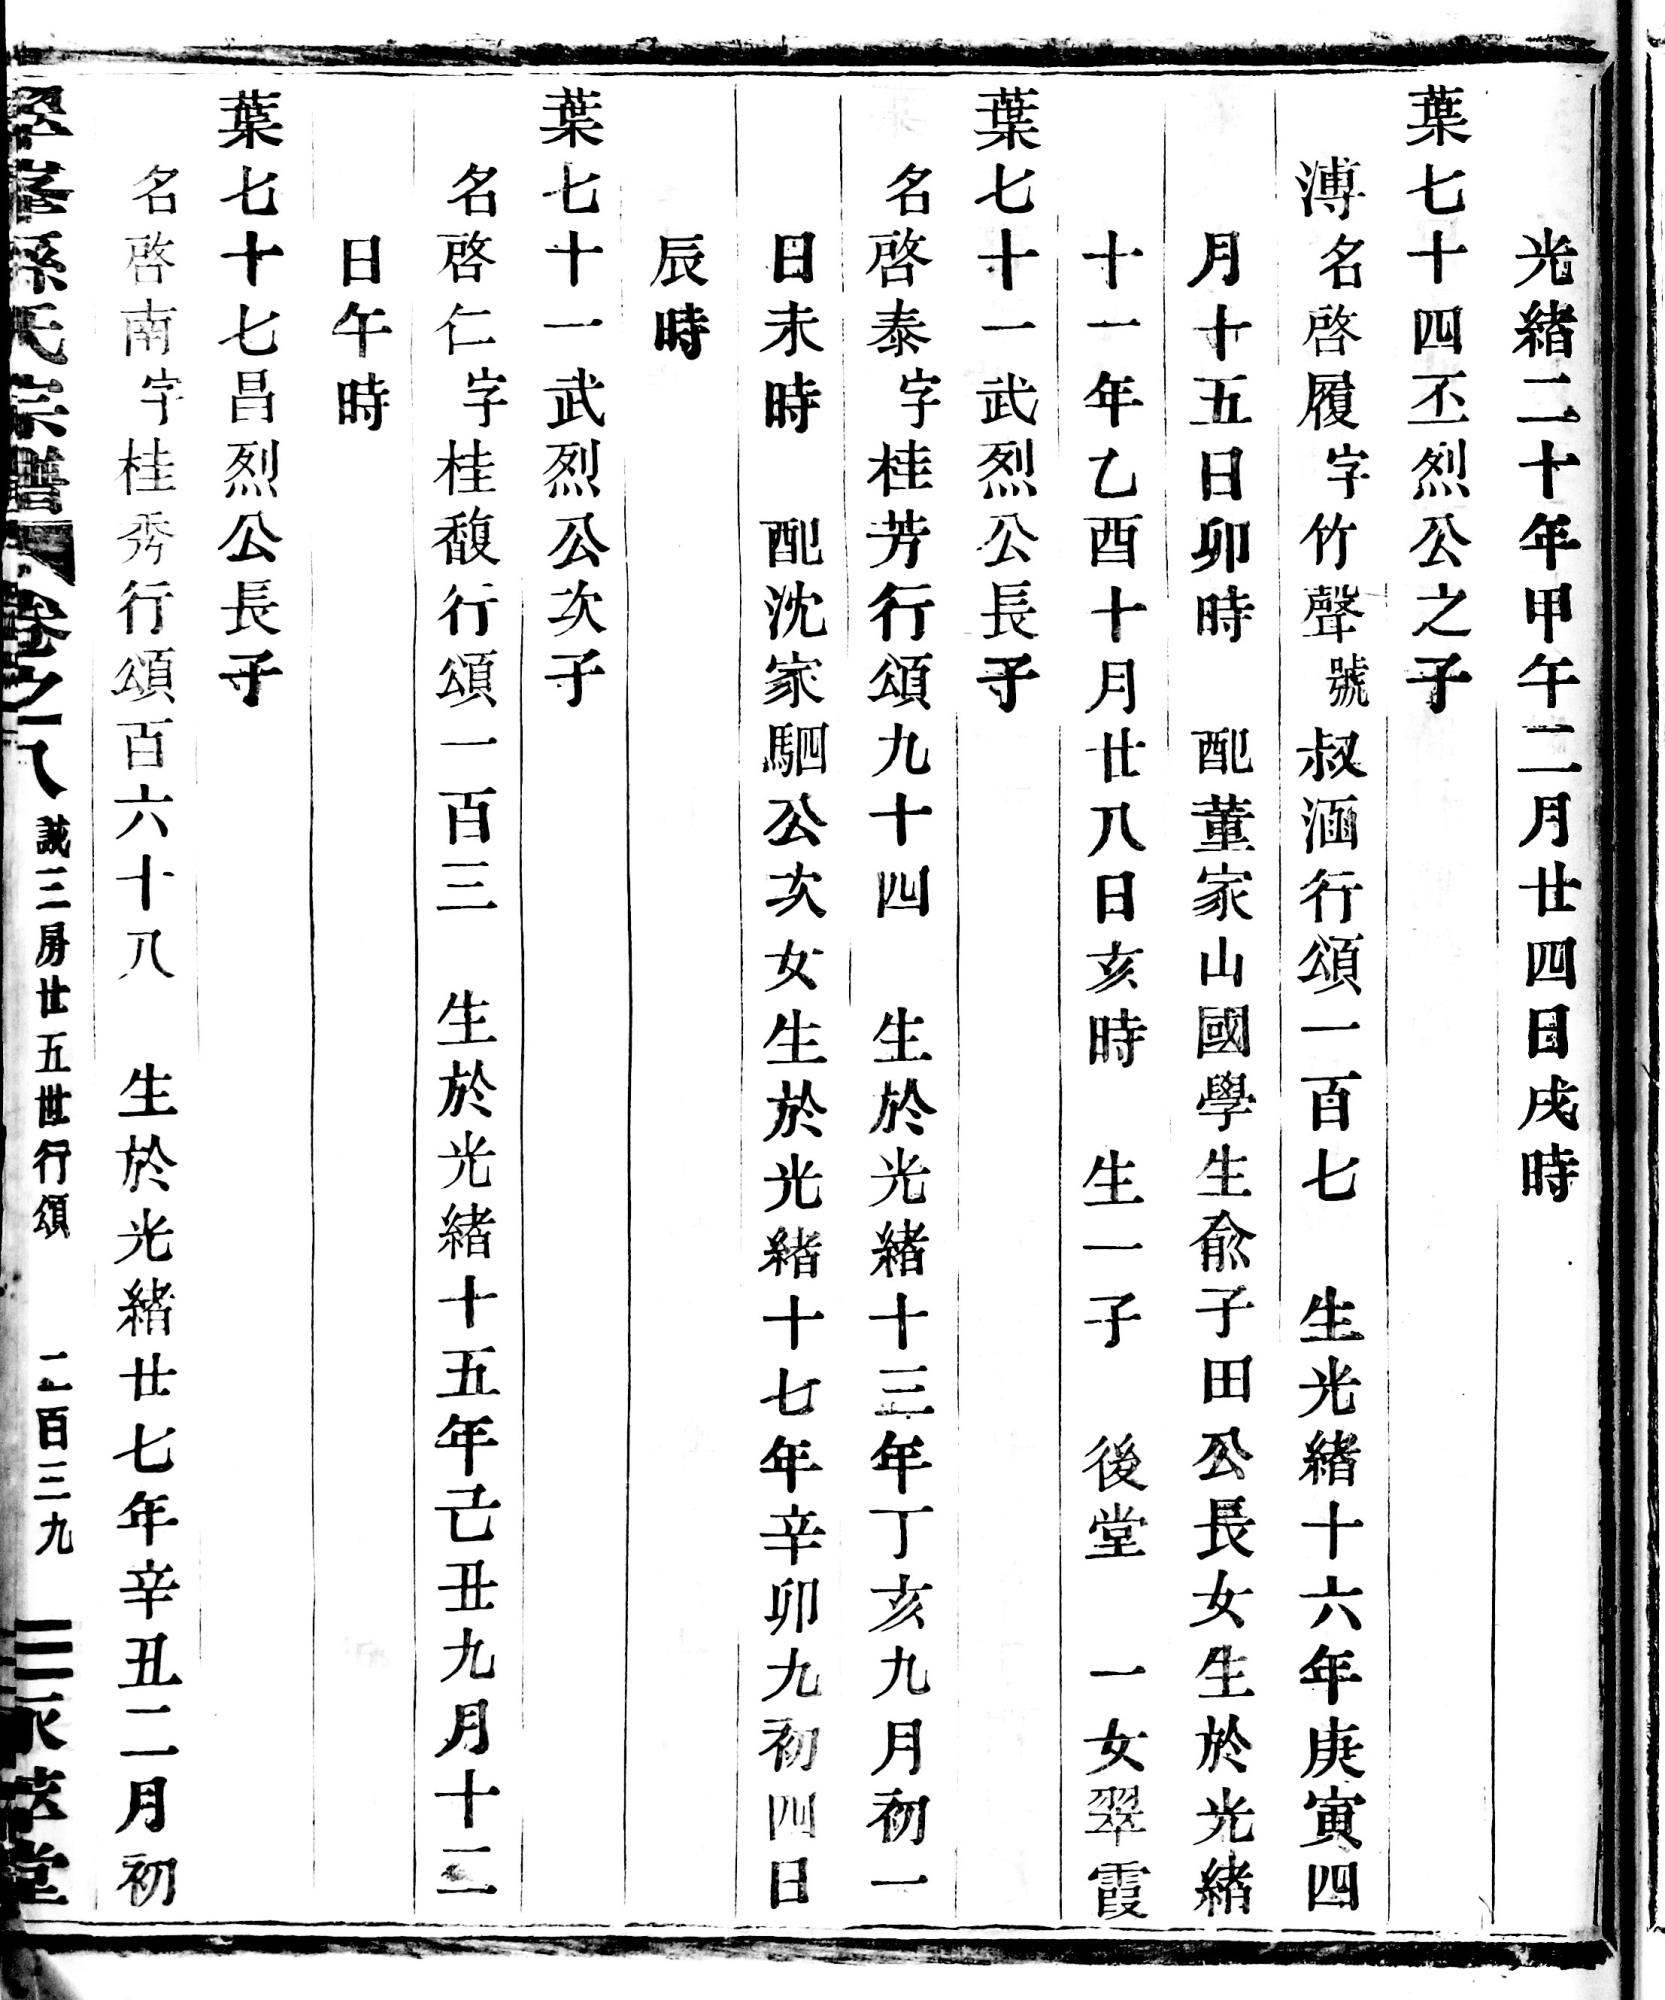 光緒二十年甲午二月廿四日戌時
葉七十四丕烈公之子
溥名啓履字竹聲號叔涵行頌一百七 生光緒十六年庚寅四
月十五日卯時 配董家山國學生俞子田公長女生於光緒
十一年乙酉十月廿八日亥時 生一子 後堂 一女翠霞
葉七十一武烈公長子
名啓泰字桂芳行頌九十四 生於光緒十三年丁亥九月初一
日未時 配沈家駟公次女生於光緒十七年辛卯九初四日
辰時
葉七十一武烈公次子
名啓仁字桂馥行頌一百三 生於光緒十五年己丑九月十二
日午時
葉七十七昌烈公長子
名啓南字桂秀行頌百六十八 生於光緒廿七年辛丑二月初
孫氏宗譜 卷之八 誠三房廿五世行頌 二百三九 堂